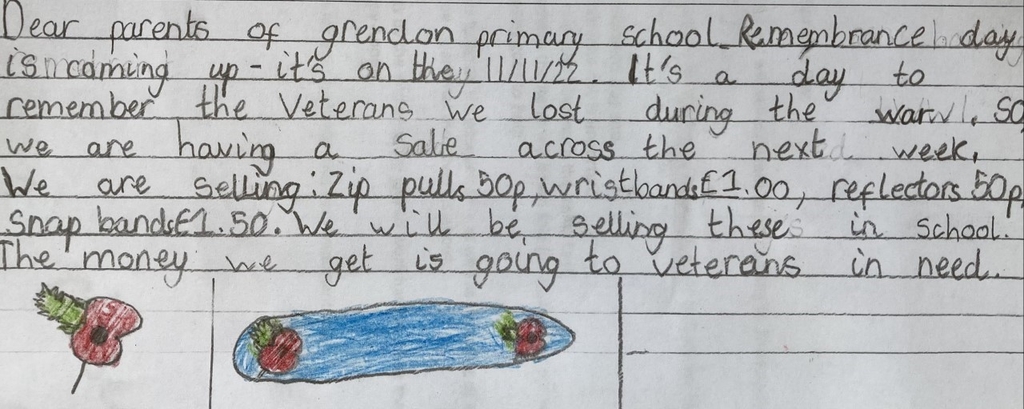 Dear parents of grendon primary school. Remembrance day
is coming up - it's on the 11/11/22. It's a day to
remember the Veterans we lost during the war. So
we are having a Sale across the next week.
We are selling: Zip pulls 50p, wristbands £1.00, reflectors 50p,
Snap bands £1.50. We will be selling these in school.
The money we get is going to veterans in need.